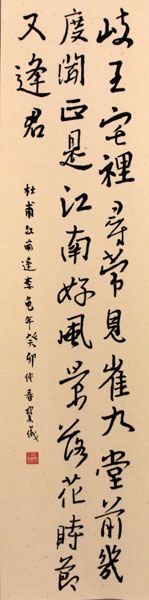 歧王宅裡尋常見崔九堂前幾
度聞正是江南好風景落花時節
又逢君
杜甫江南逢李龜年癸卯仲春